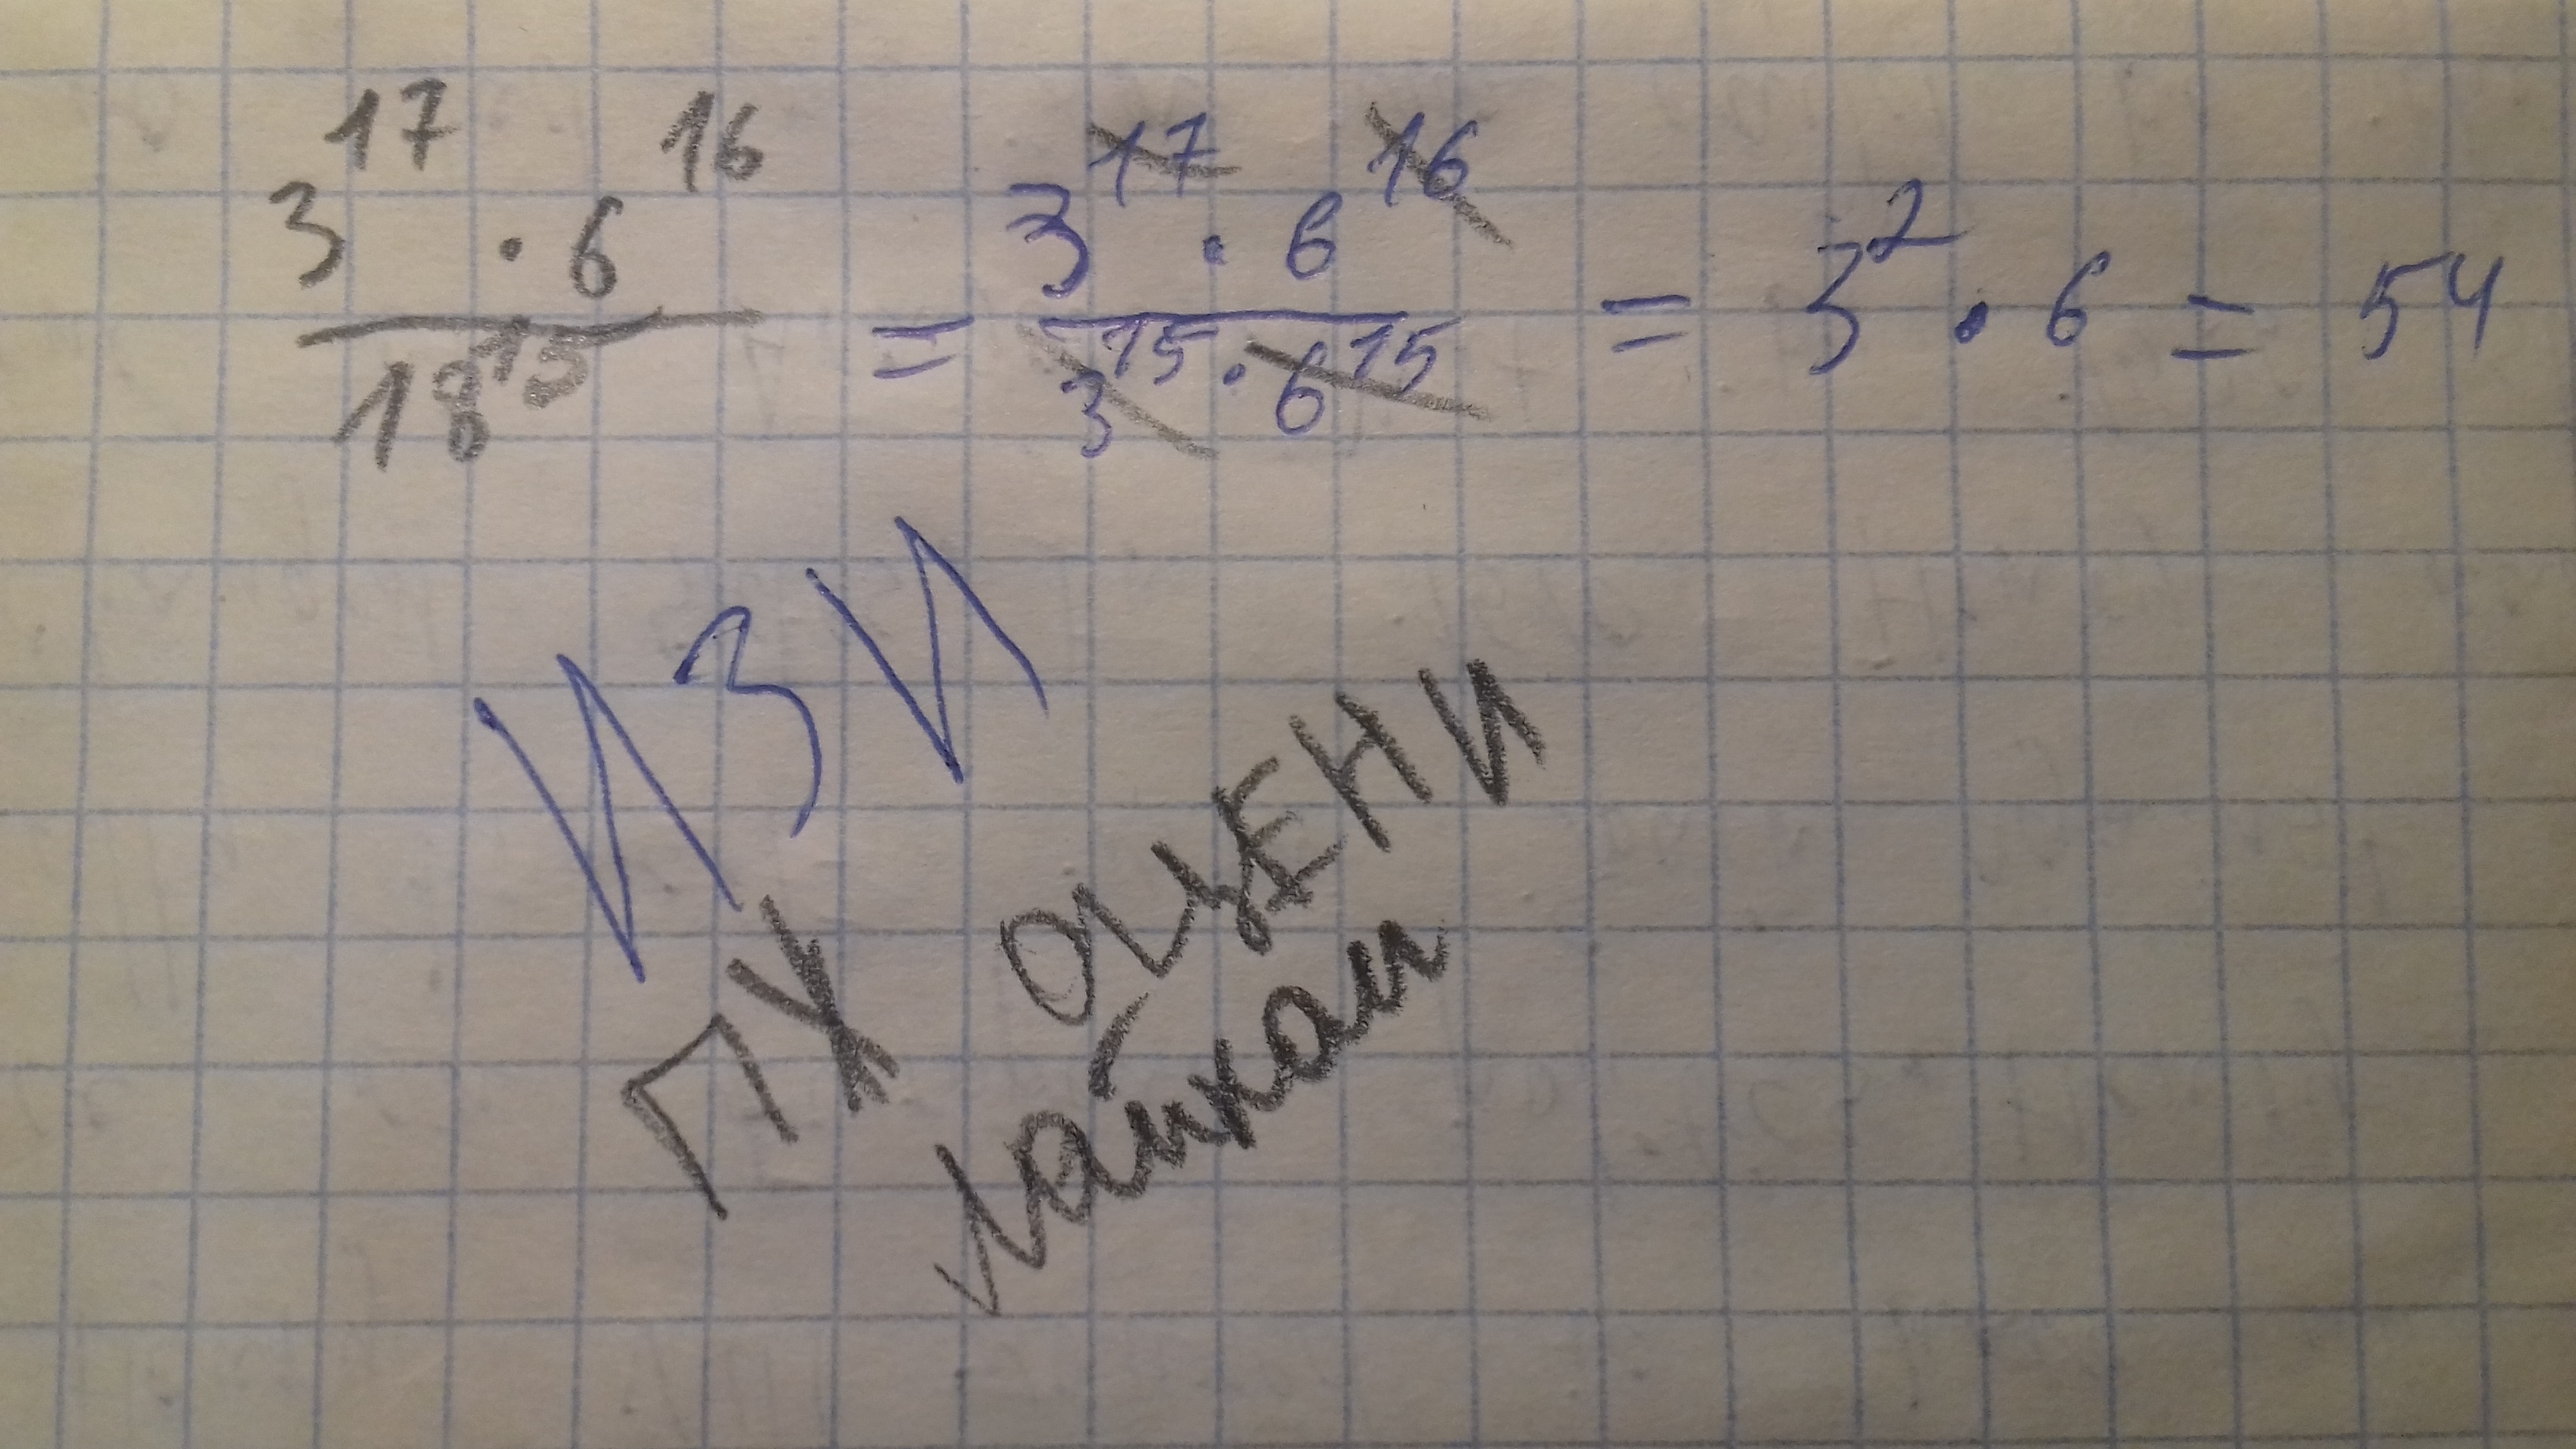 3^17 · 6^16 / 18^15 = 3^17 · 6^16 / 3^15 · 6^15 = 3^2 · 6 = 54
ИЗИ
ПЖ ОЦЕНИ
лайкан